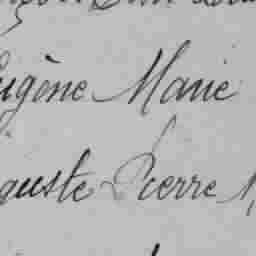 ugène Marie
guste Pierre